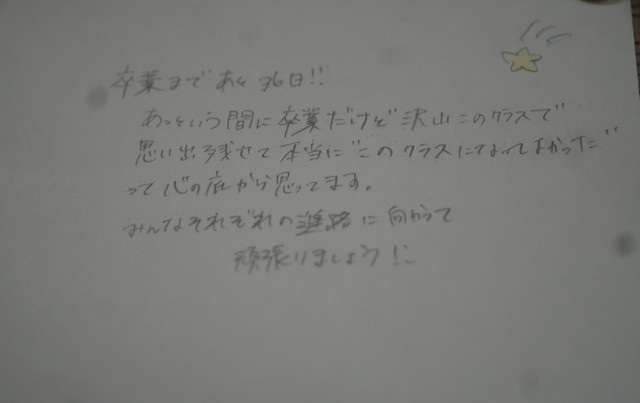 卒業まであと36日!!
あっという間に卒業だけど沢山このクラスで
思い出残せて本当に"このクラスになってよかった"
って心の底から思ってます。
みんなそれぞれの進路に向かって
頑張りましょう!!